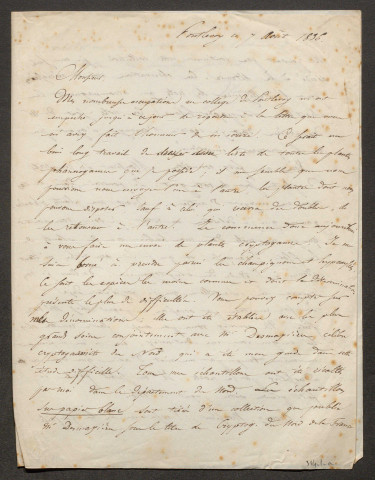 7 Août 1836
Monsieur
Mes nombreuses occupations au collège de m'ont
empêché jusqu'à ce jour de répondre à la lettre que vous
m'avez fait l'honneur de m'écrire. Ce serait un
bien long travail de liste de toutes les plantes
phanérogames que je possède, il me semble que nous
pourrions nous envoyer l'un à l'autre les plantes dont nous
pouvons disposer sauf à
les retourner à l'autre. Je commencerai donc aujourd'hui
à vous faire un envoi de plantes cryptogames. Je me
suis borné à prendre parmi les champignons et hypoxylés
les espèces les moins communes et dont la détermination
présente le plus de difficultés. Vous pouvez compter sur
mes dénominations. Elles ont été établies avec le plus
grand soin conjointement avec Mr Desmazières, célèbre
cryptogamiste du Nord qui a été mon guide dans cette
étude difficile. Tous mes échantillons ont été récoltés
par moi dans le département du Nord. Les échantillons
sur papier blanc sont tirés d'une collection que publie
Mr Desmazières sous le titre de Cryptog. du Nord de la France